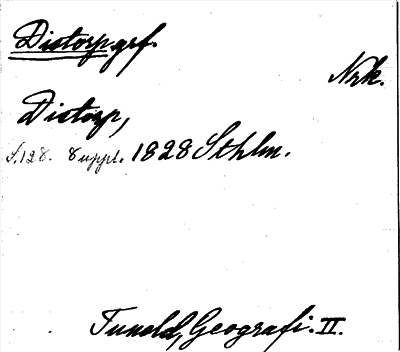 Distorp grf.
Nrk.
Distorp,
S. 128. 8 uppl. 1828 Sthlm.
Tuneld, Geografi. II.